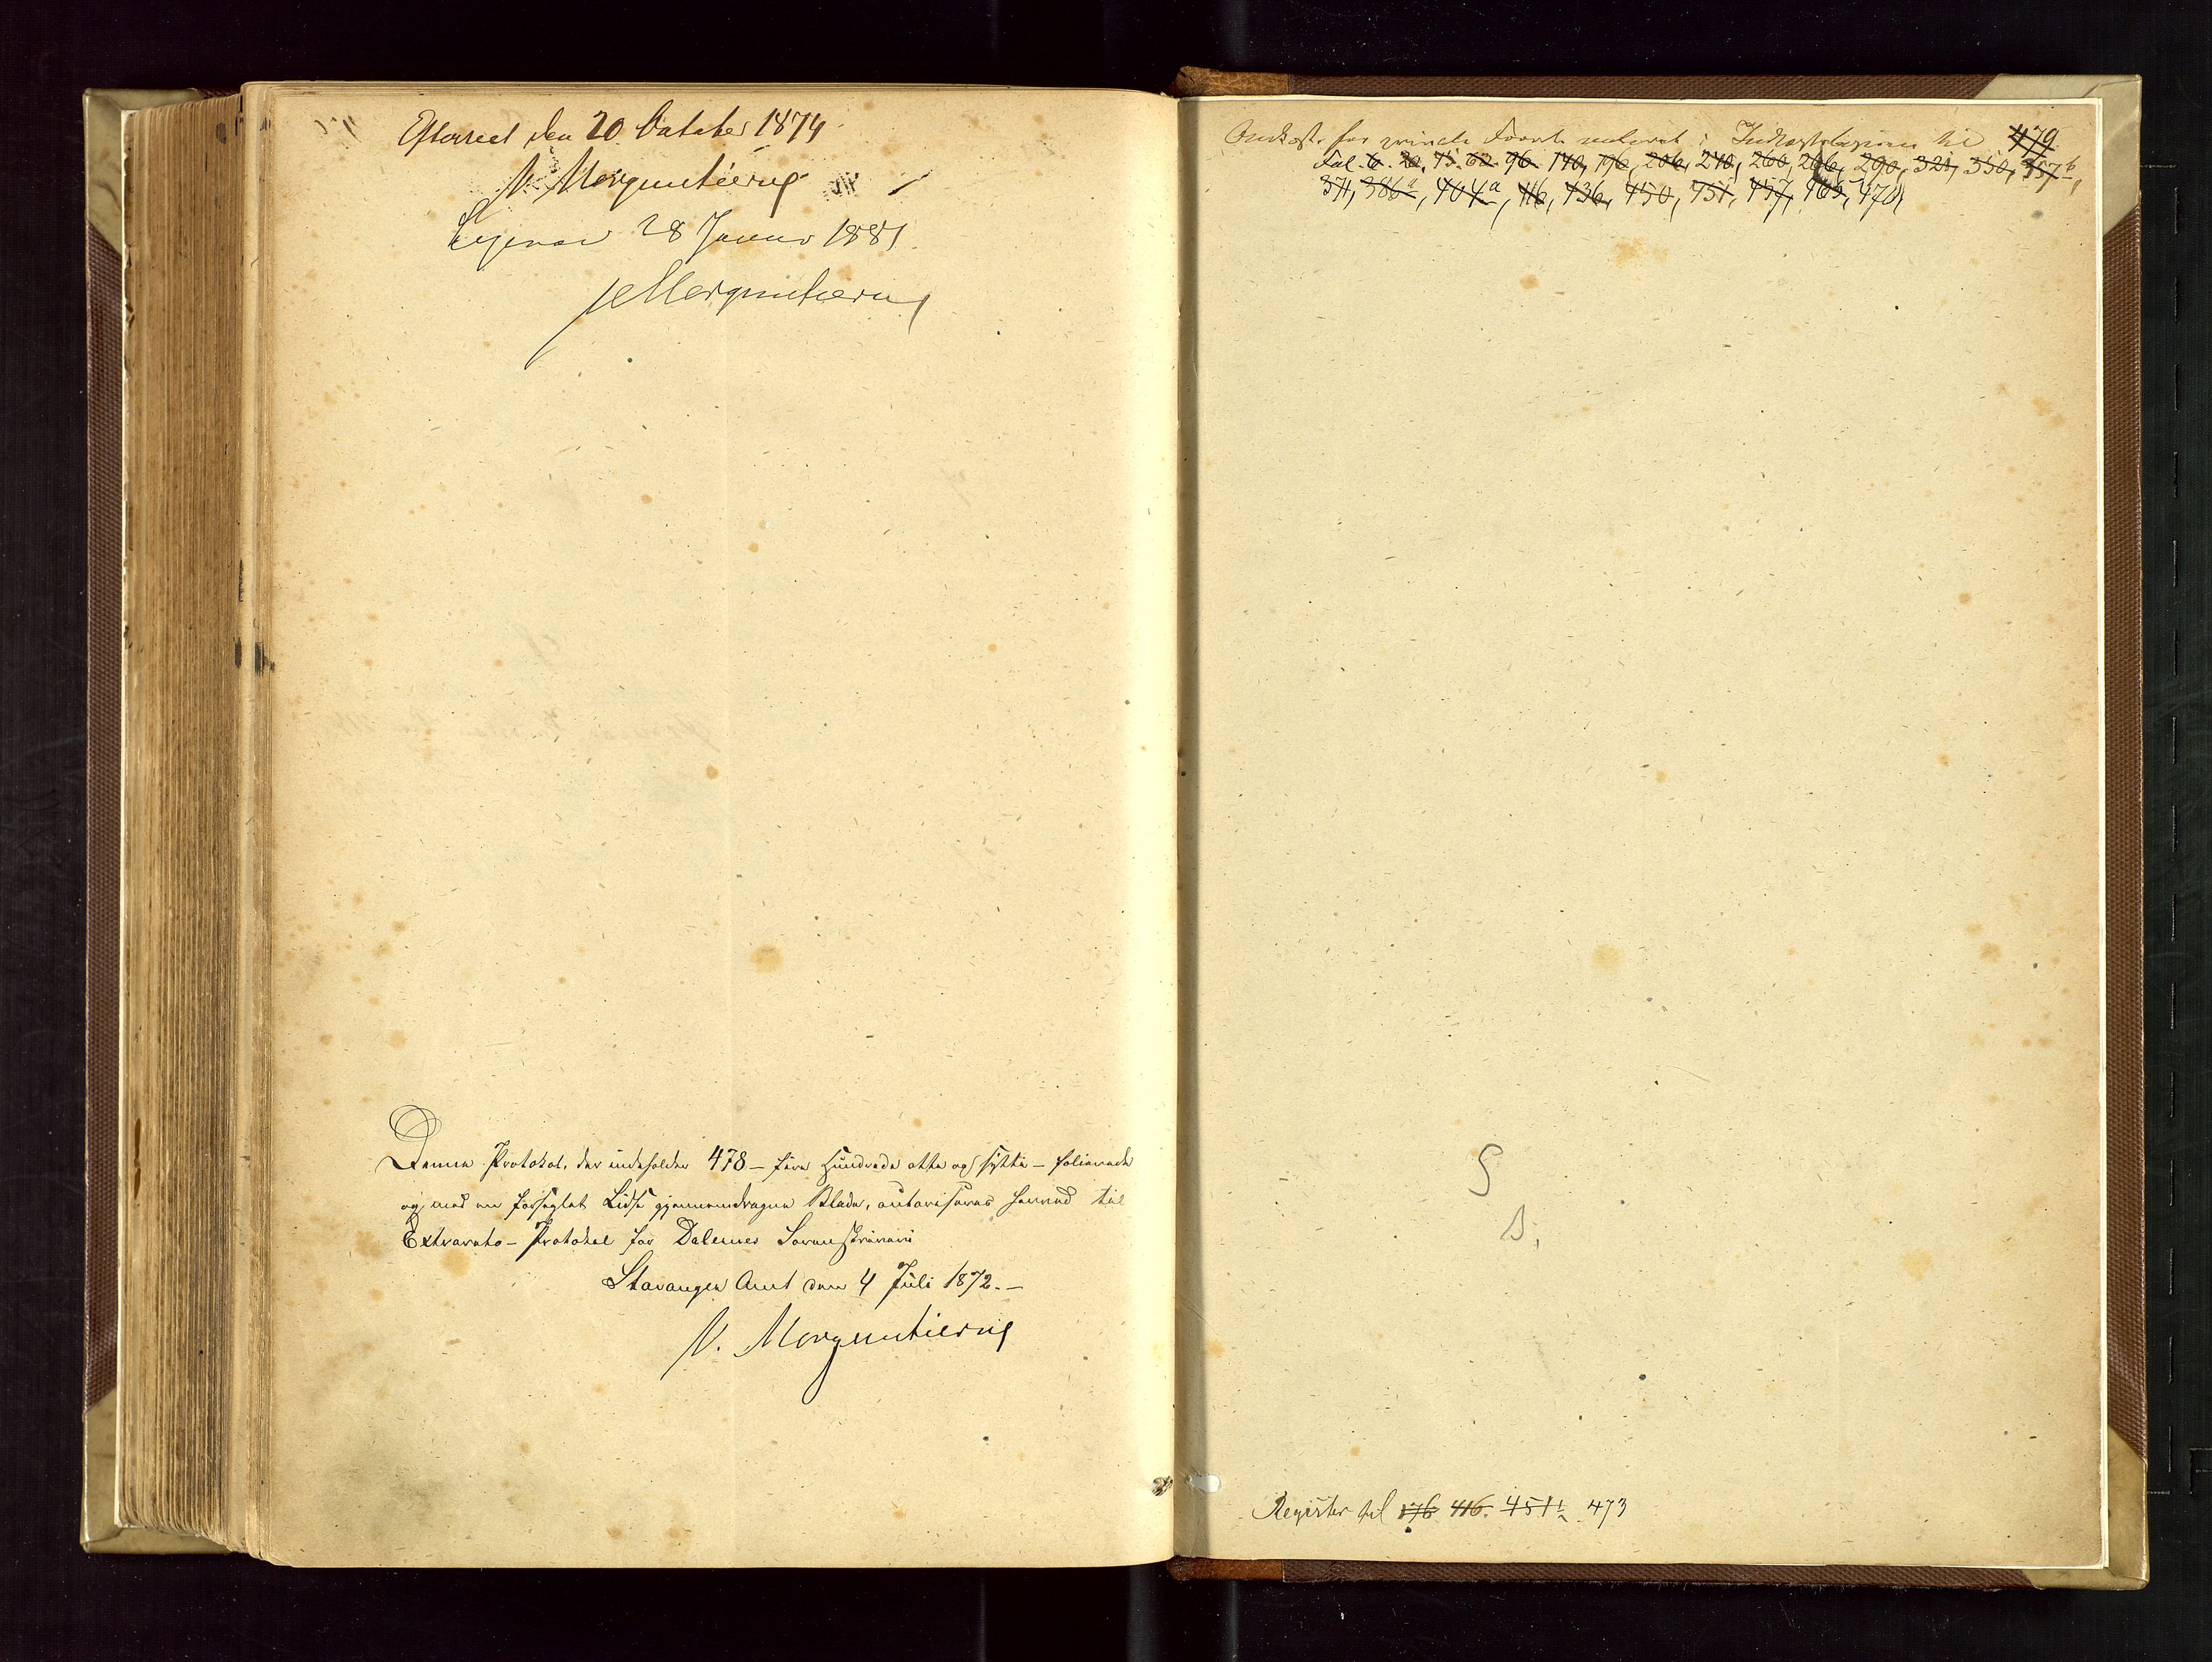 Efterseet den 20 Oktober 1874
V. Morgenstierne
28 Januar 1881
Morgenstierne
Denne Protokol, der indeholder 478 – fire Hundrede otte og sytti – folierede
og med en forseglet Lidse gjennemdragne Blade, autoriseres herved til
Extrarets-Protokol for Dalernes Sorenskriveri
Stavanger Amt den 4 Juli 1872. –
V. Morgenstierne
for private i til 479
Fol. 6. 20. 45. 62. 96. 140, 196, 206, 240, 260, 266, 290, 321, 350, 357 b,
371, 386 a, 404 a, 416, 436, 450, 451, 457, 465, 470
S
S,
Register til 176 416. 451 b 473